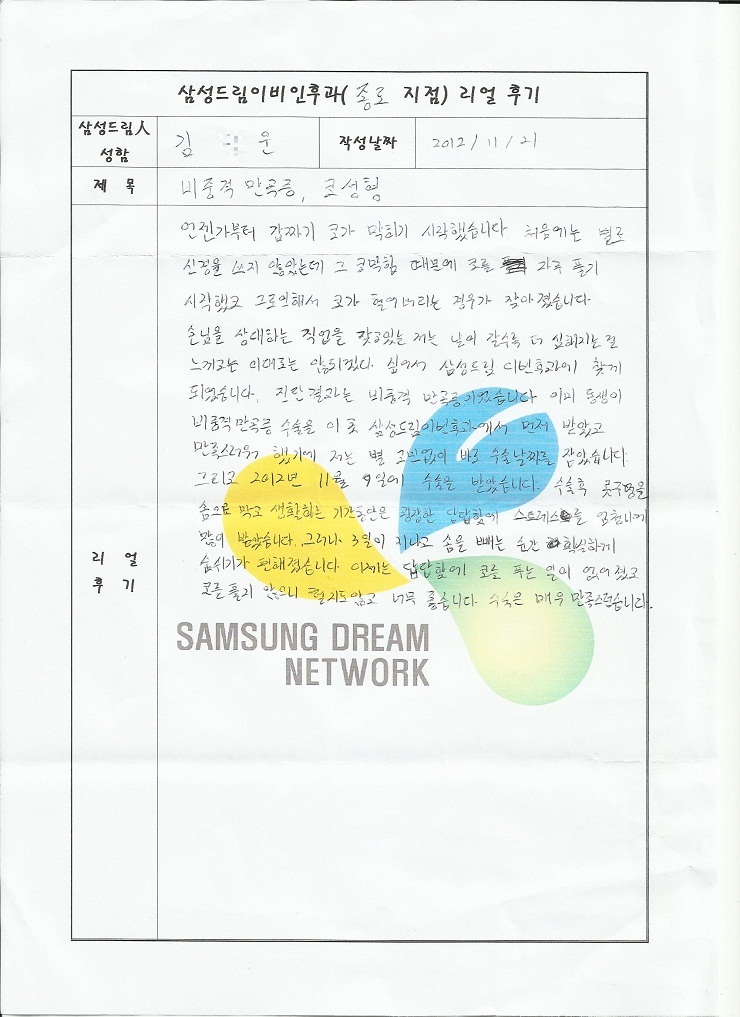 삼성드림이비인후과( 종로 지점) 리얼 후기
삼성드림人 성함 김 운 작성날짜 2012 / 11 / 21
제 목 비중격 만곡증, 코성형
리 얼 후 기
언젠가부터 갑짜기 코가 막히기 시작했습니다 처음에는 별로
신경을 쓰지 않았는데 그 코막힘 때문에 코를 자주 풀기
시작했고 그로인해서 코가 헐어버리는 경우가 작아졌습니다
손님을 상대하는 직업을 갖고있는 저는 날이 갈수록 더 심해지는걸
느끼고는 이대로는 않되겠다. 싶어서 삼성드림 이빈후과에 찾게
되었습니다. 진단결과는 비중격 만곡증이었습니다 이미 동생이
비중격만곡증 수술을 이 곳 삼성드림이빈후과에서 먼저 받았고
만족스러워 했기에 저는 별 고민없이 바로 수술날짜를 잡았습니다.
그리고 2012년 11월 9일에 수술을 받았습니다. 수술후 콧구멍을
솜으로 막고 생활하는 기간동안은 굉장한 답답함에 스트레스를 엄청나게
많이 받았습니다. 그러나 3일이 지나고 솜을 빼는 순간 확실하게
숨쉬기가 편해졌습니다 이제는 답답함에 코를 푸는 일이 없어졌고
코를 풀지 않으니 헐지도않고 너무 좋습니다. 수술은 매우 만족스럽습니다.
SAMSUNG DREAM
NETWORK